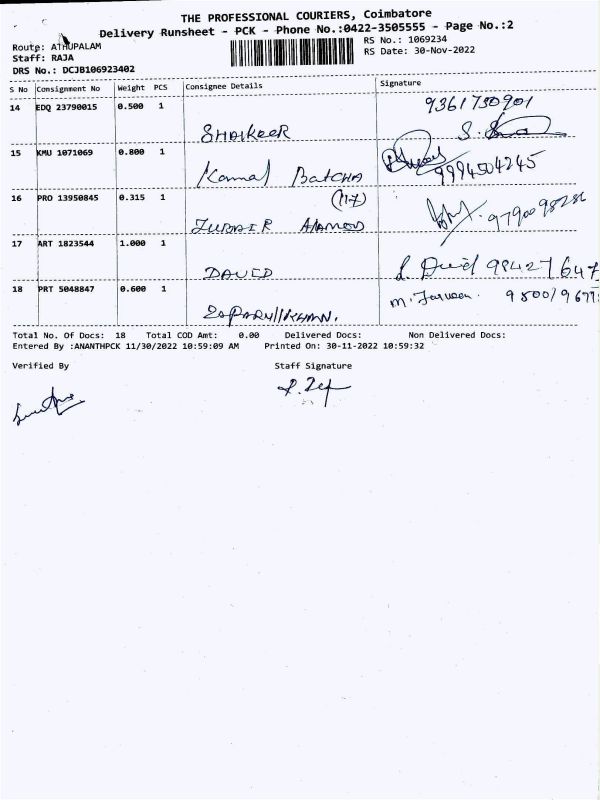 THE PROFESSIONAL COURIERS, Coimbatore
Delivery Runsheet - PCK - Phone No.:0422-3505555 - Page No.:2
Route: ATHUPALAM
RS No.: 1069234
Staff: RAJA
RS Date: 30-Nov-2022
DRS No.: DCJB106923402
S No Consignment No Weight PCS Consignee Details Signature
14 EDQ 23790015 0.500 1
9361730901
SHAIKEER
15 KMU 1071069 0.800 1
Kamal BatCHA
9994504245
16 PRO 13950845 0.315 1
(117)
ZUBAIR AHAMED
9790098286
17 ART 1823544 1.000 1
DAVID
98427647
18 PRT 5048847 0.600 1
Total No. Of Docs: 18 Total COD Amt: 0.00 Delivered Docs: Non Delivered Docs:
Entered By :ANANTHPCK 11/30/2022 10:59:09 AM Printed On: 30-11-2022 10:59:32
Verified By Staff Signature